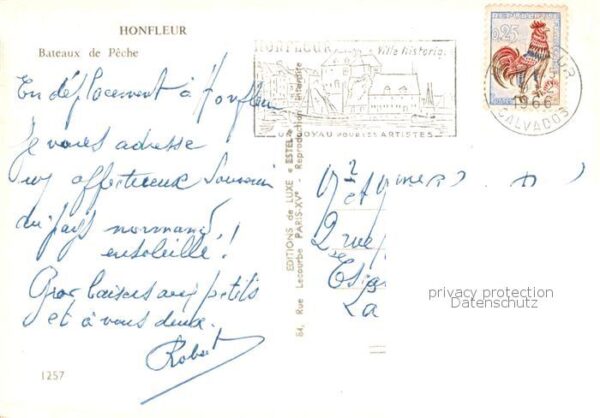 HONFLEUR
Bateaux de Pêche
En déplacement à Honfleur
Je vous adresse
un affectueux souvenir
du pays normand
ensoleillé !
Gros baisers aux petits
et à vous deux.
Robert
1257
HONFLEUR
Ville historiq.
JOYAU POUR LES ARTISTES
0,25
1966
CALVADOS
EDITIONS de LUXE « ESTEL » Reproduction interdite
84, Rue Lecourbe PARIS-XVe
Mr et
2 rue
La
privacy protection
Datenschutz